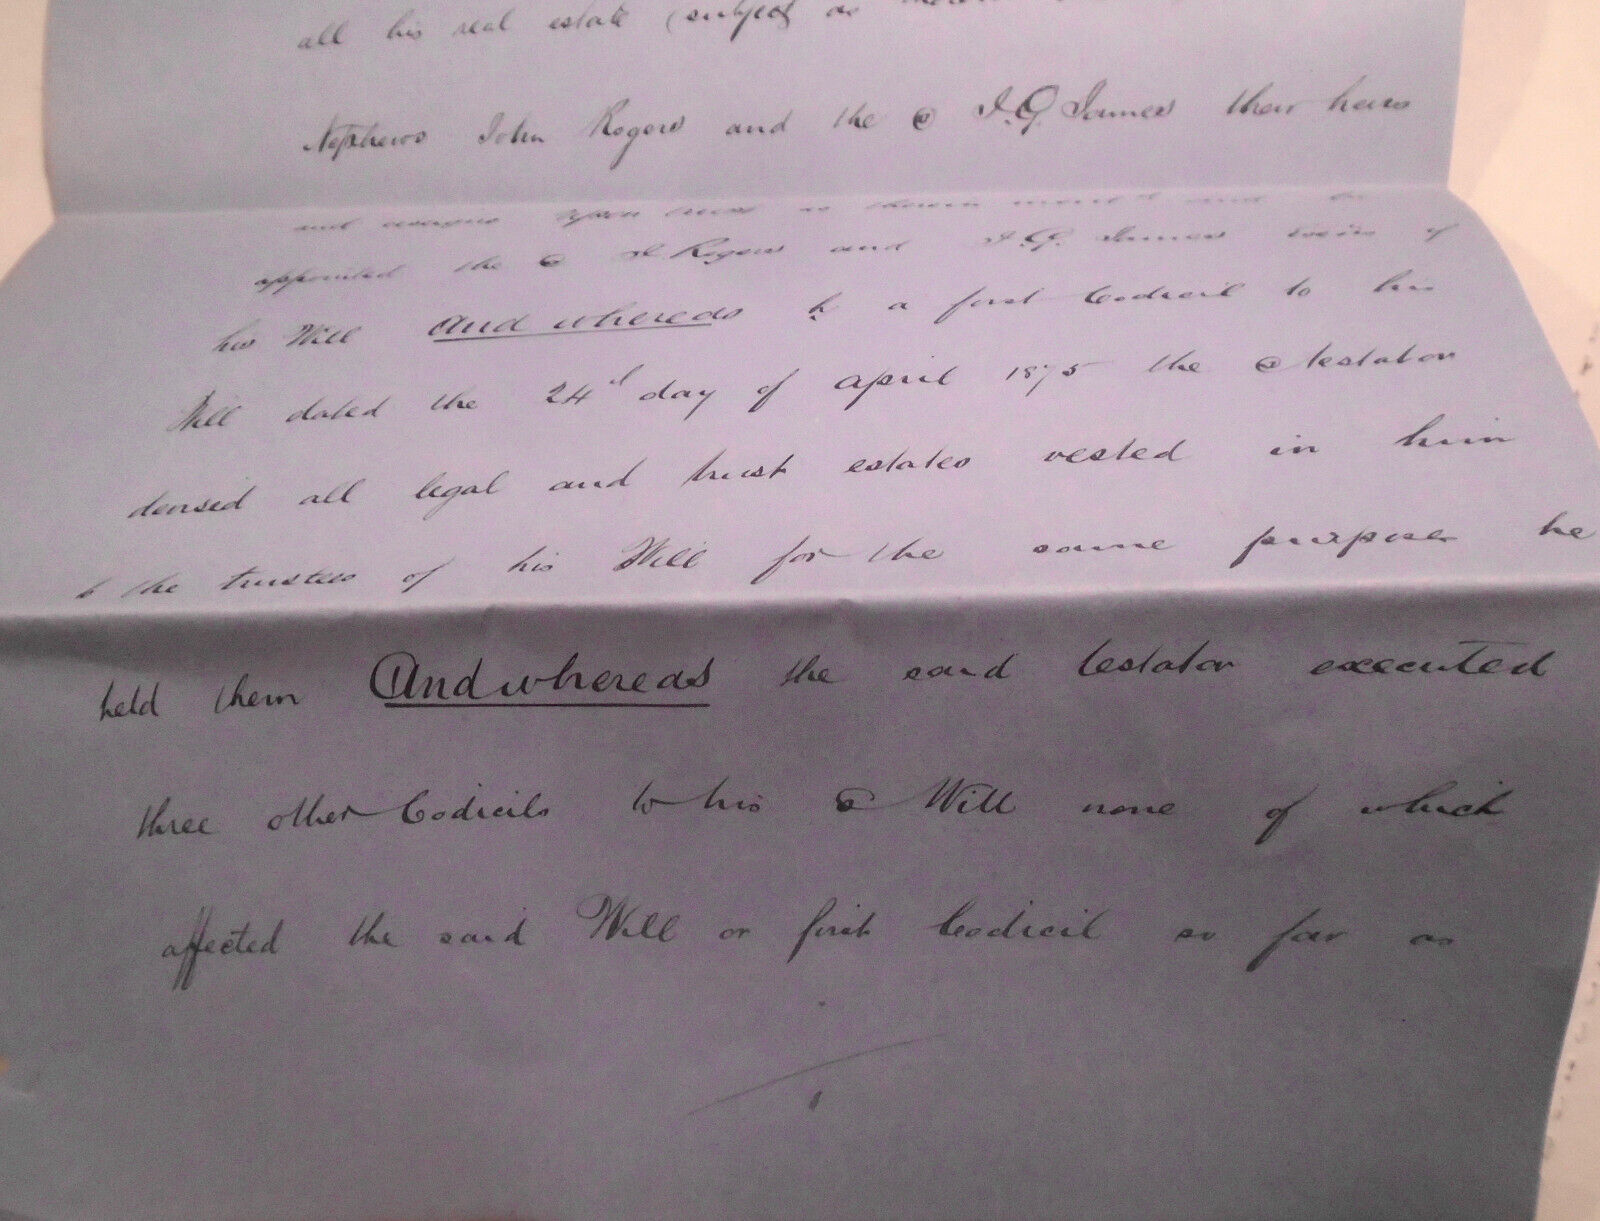 all his real estate (subject as
Nephews John Rogers and the @ J.G. James their heirs
and assigns upon trust as therein ment^d and he
appointed the @ J. Rogers and J.G. James exors of
his Will And whereas by a first Codicil to his
Will dated the 24th day of April 1875 the @ testator
devised all legal and trust estates vested in him
to the trustees of his Will for the same purposes he
held them And whereas the said testator executed
three other Codicils to his @ Will none of which
affected the said Will or first Codicil so far as